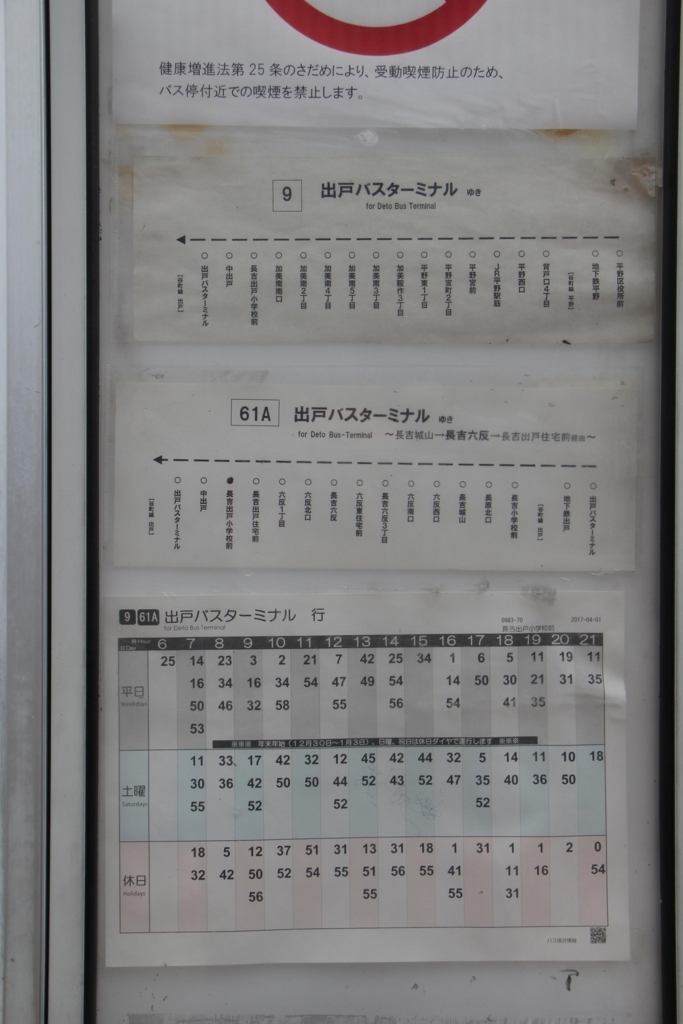 健康増進法第25条のさだめにより、受動喫煙防止のため、
バス停付近での喫煙を禁止します。
9 出戸バスターミナル ゆき
for Deto Bus Terminal
平野区役所前
地下鉄平野
[谷町線 平野]
背戸口4丁目
平野西口
JR平野駅筋
平野宮前
平野宮町2丁目
平野東1丁目
加美鞍作3丁目
加美南3丁目
加美南5丁目
加美南4丁目
加美南2丁目
加美南南口
長吉出戸小学校前
中出戸
出戸バスターミナル
[谷町線 出戸]
61A 出戸バスターミナル ゆき
for Deto Bus-Terminal ～長吉城山→長吉六反→長吉出戸住宅前経由～
出戸バスターミナル
地下鉄出戸
[谷町線 出戸]
長吉小学校前
長原北口
長吉城山
六反西口
六反南口
長吉六反3丁目
六反東住宅前
長吉六反
六反北口
六反1丁目
長吉出戸住宅前
長吉出戸小学校前
中出戸
出戸バスターミナル
[谷町線 出戸]
9 61A 出戸バスターミナル 行
for Deto Bus Terminal
0983-70 2017-04-01
長吉出戸小学校前
時 Hour 6 7 8 9 10 11 12 13 14 15 16 17 18 19 20 21
日 Day
平日
Weekdays
25 14 23 3 2 21 7 42 25 34 1 6 5 11 19 11
16 34 16 34 54 47 49 54 14 50 30 21 31 35
50 46 32 58 55 56 54 41 35
53
年末年始(12月30日～1月3日)、日曜、祝日は休日ダイヤで運行します
土曜
Saturdays
11 33 17 42 32 12 45 42 44 32 5 14 11 10 18
30 36 42 50 50 44 52 43 52 47 35 40 36 50
55 52 52 52
休日
Holidays
18 5 12 37 51 31 13 31 18 1 31 1 1 2 0
32 42 50 52 54 55 51 56 55 41 11 16 54
56 55 55 31
バス接近情報